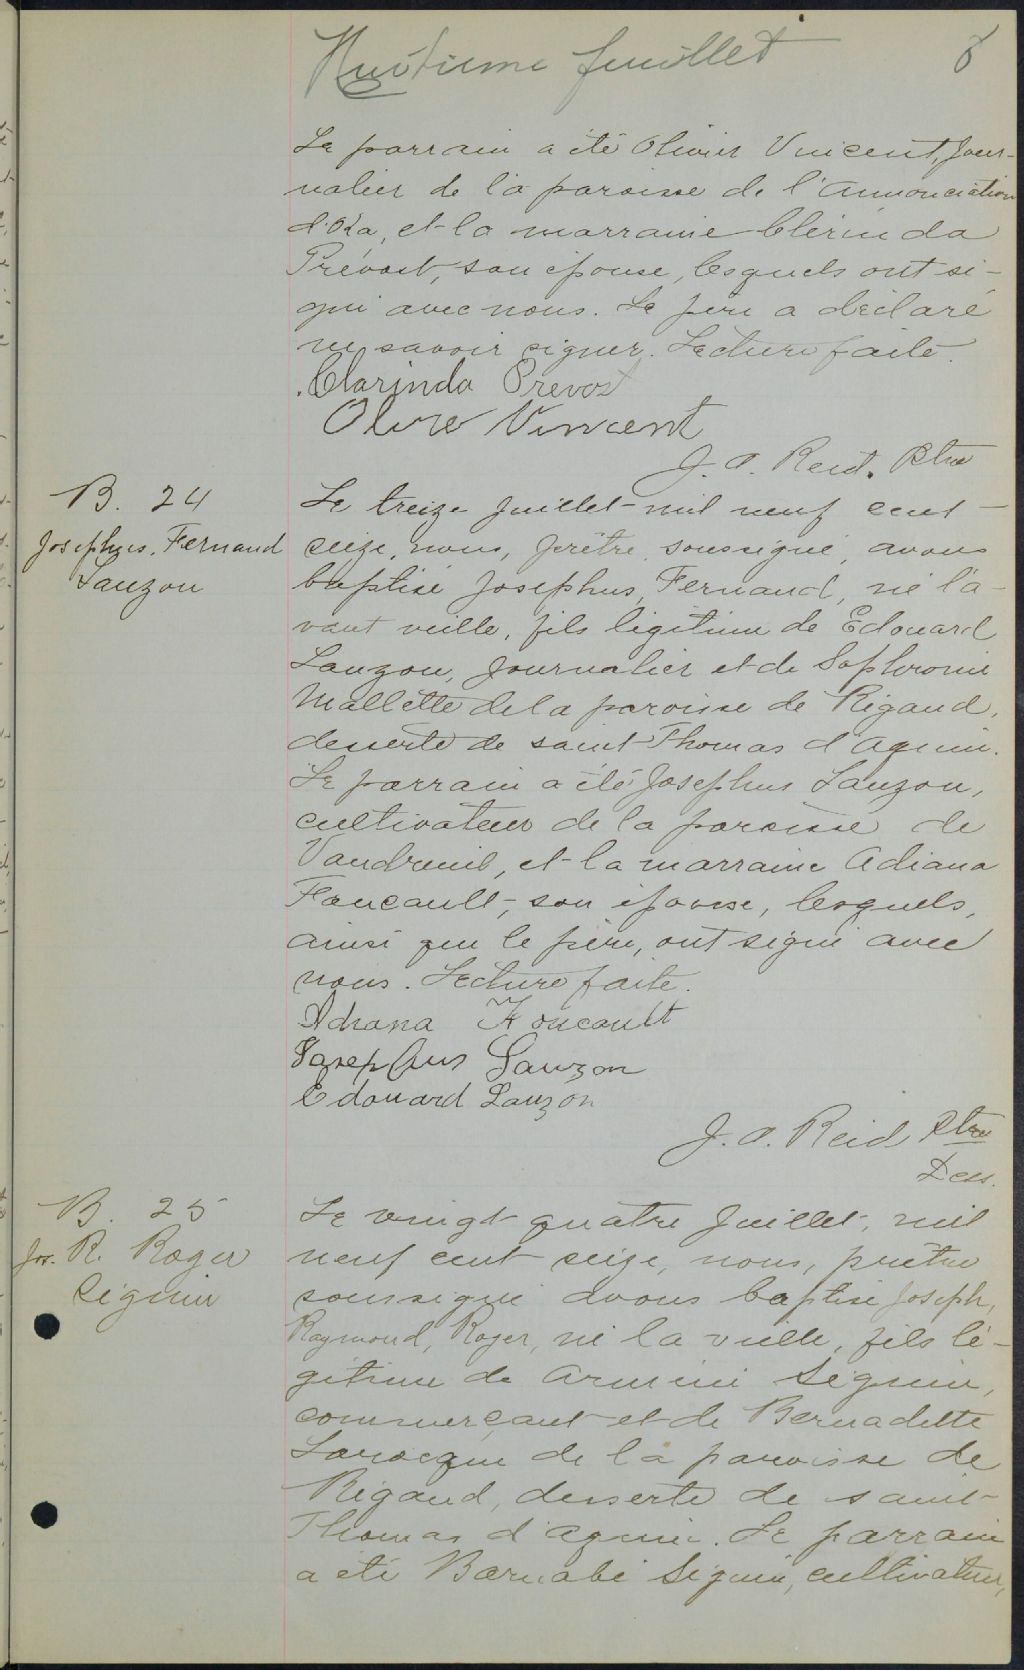 Huitième feuillet 8
Le parrain a été Olivier Vincent, jour-
nalier de la paroisse de l'Annonciation
d'Oka, et la marraine Clérinda
Prévost, son épouse, lesquels ont si-
gné avec nous. Le père a déclaré
ne savoir signer. Lecture faite.
Clarinda Prevost
Olivre Vincent
J. A. Reid. Ptre
B. 24
Josephus, Fernand
Lauzon
Le treize juillet mil neuf cent
seize, nous, prêtre soussigné, avons
baptisé Josephus, Fernand, né l'a-
vant veille, fils légitime de Edouard
Lauzon, journalier et de Sophronie
Mallette de la paroisse de Rigaud,
desserte de saint Thomas d'Aquin.
Le parrain a été Josephus Lauzon,
cultivateur de la paroisse de
Vaudreuil, et la marraine Adiana
Foucault, son épouse, lesquels,
ainsi que le père, ont signé avec
nous. Lecture faite.
Adrana Foucault
Josephus Lauzon
Edouard Lauzon
J. A. Reid Ptre
Dess.
B. 25
Jos. R. Roger
Séguin
Le vingt quatre juillet, mil
neuf cent seize, nous, prêtre
soussigné avons baptisé Joseph,
Raymond, Roger, né la veille, fils lé-
gitime de Arménie Séguin,
commerçant et de Bernadette
Larocque de la paroisse de
Rigaud, desserte de saint
Thomas d'Aquin. Le parrain
a été Barnabé Séguin, cultivateur,